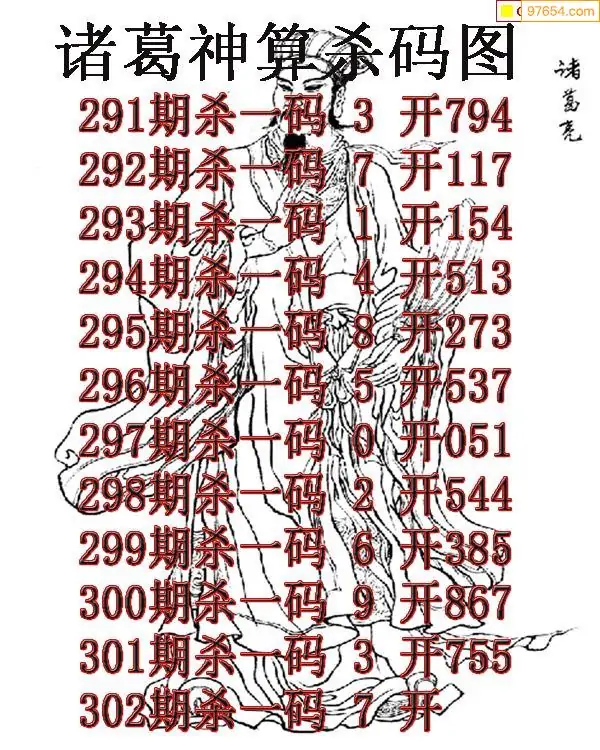 97654.com
诸葛神算杀码图
诸葛亮
291期杀一码 3 开794
292期杀一码 7 开117
293期杀一码 1 开154
294期杀一码 4 开513
295期杀一码 8 开273
296期杀一码 5 开537
297期杀一码 0 开051
298期杀一码 2 开544
299期杀一码 6 开385
300期杀一码 9 开867
301期杀一码 3 开755
302期杀一码 7 开